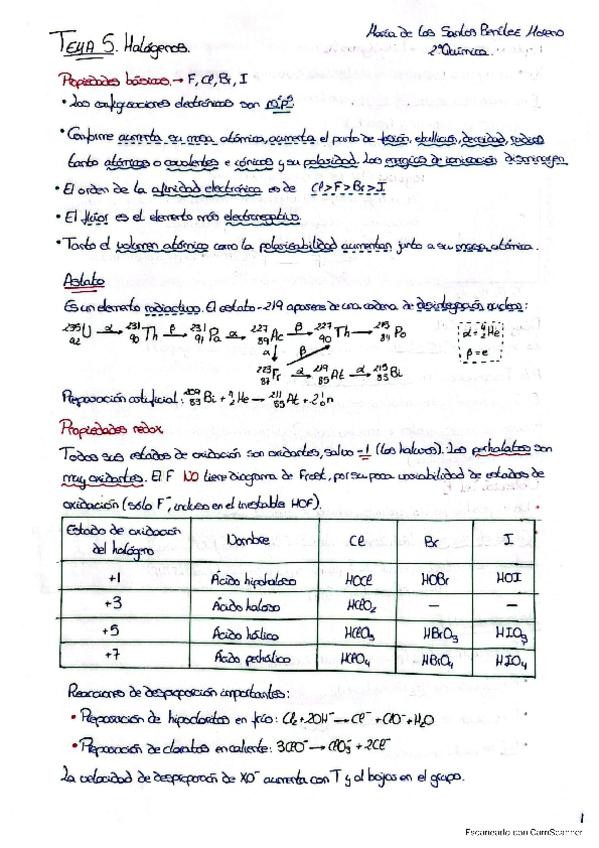 María de los Santos Benítez Moreno
TEMA 5. Halógenos.
2º Química.
Propiedades básicas → F, Cl, Br, I
• Las configuraciones electrónicas son ns²p⁵
• Conforme aumenta su masa atómica, aumenta el punto de fusión, ebullición, densidad, radios
tanto atómicos o covalentes e iónicos y su polaridad. Las energías de ionización disminuyen.
• El orden de la afinidad electrónica es de Cl > F > Br > I
• El flúor es el elemento más electronegativo.
• Tanto el volumen atómico como la polarisabilidad aumentan junto a su masa atómica.
Astato
Es un elemento radiactivo. El astato-219 aparece de una cadena de desintegración nuclear:
²³⁵₉₂U —α→ ²³¹₉₀Th —β→ ²³¹₉₁Pa —α→ ²²⁷₈₉Ac —β→ ²²⁷₉₀Th → ²¹⁵₈₄Po
α = ⁴₂He
α↓ β
β = e⁻
²²³₈₇Fr —α→ ²¹⁹₈₅At —α→ ²¹⁵₈₃Bi
Preparación artificial: ²⁰⁹₈₃Bi + ⁴₂He → ²¹¹₈₅At + 2¹₀n
Propiedades redox
Todos sus estados de oxidación son oxidantes, salvo -1 (los haluros). Los perhalatos son
muy oxidantes. El F NO tiene diagrama de Frost, por su poca variabilidad de estados de
oxidación (sólo F⁻, incluso en el inestable HOF).
Estado de oxidación del halógeno | Nombre | Cl | Br | I
+1 | Ácido hipohaloso | HOCl | HOBr | HOI
+3 | Ácido haloso | HClO₂ | — | —
+5 | Ácido hálico | HClO₃ | HBrO₃ | HIO₃
+7 | Ácido perhálico | HClO₄ | HBrO₄ | HIO₄
Reacciones de desproporción importantes:
• Preparación de hipocloritos en frío: Cl₂ + 2OH⁻ → Cl⁻ + ClO⁻ + H₂O
• Preparación de cloratos en caliente: 3ClO⁻ → ClO₃⁻ + 2Cl⁻
La velocidad de desproporción de XO⁻ aumenta con T y al bajar en el grupo.
1
Escaneado con CamScanner